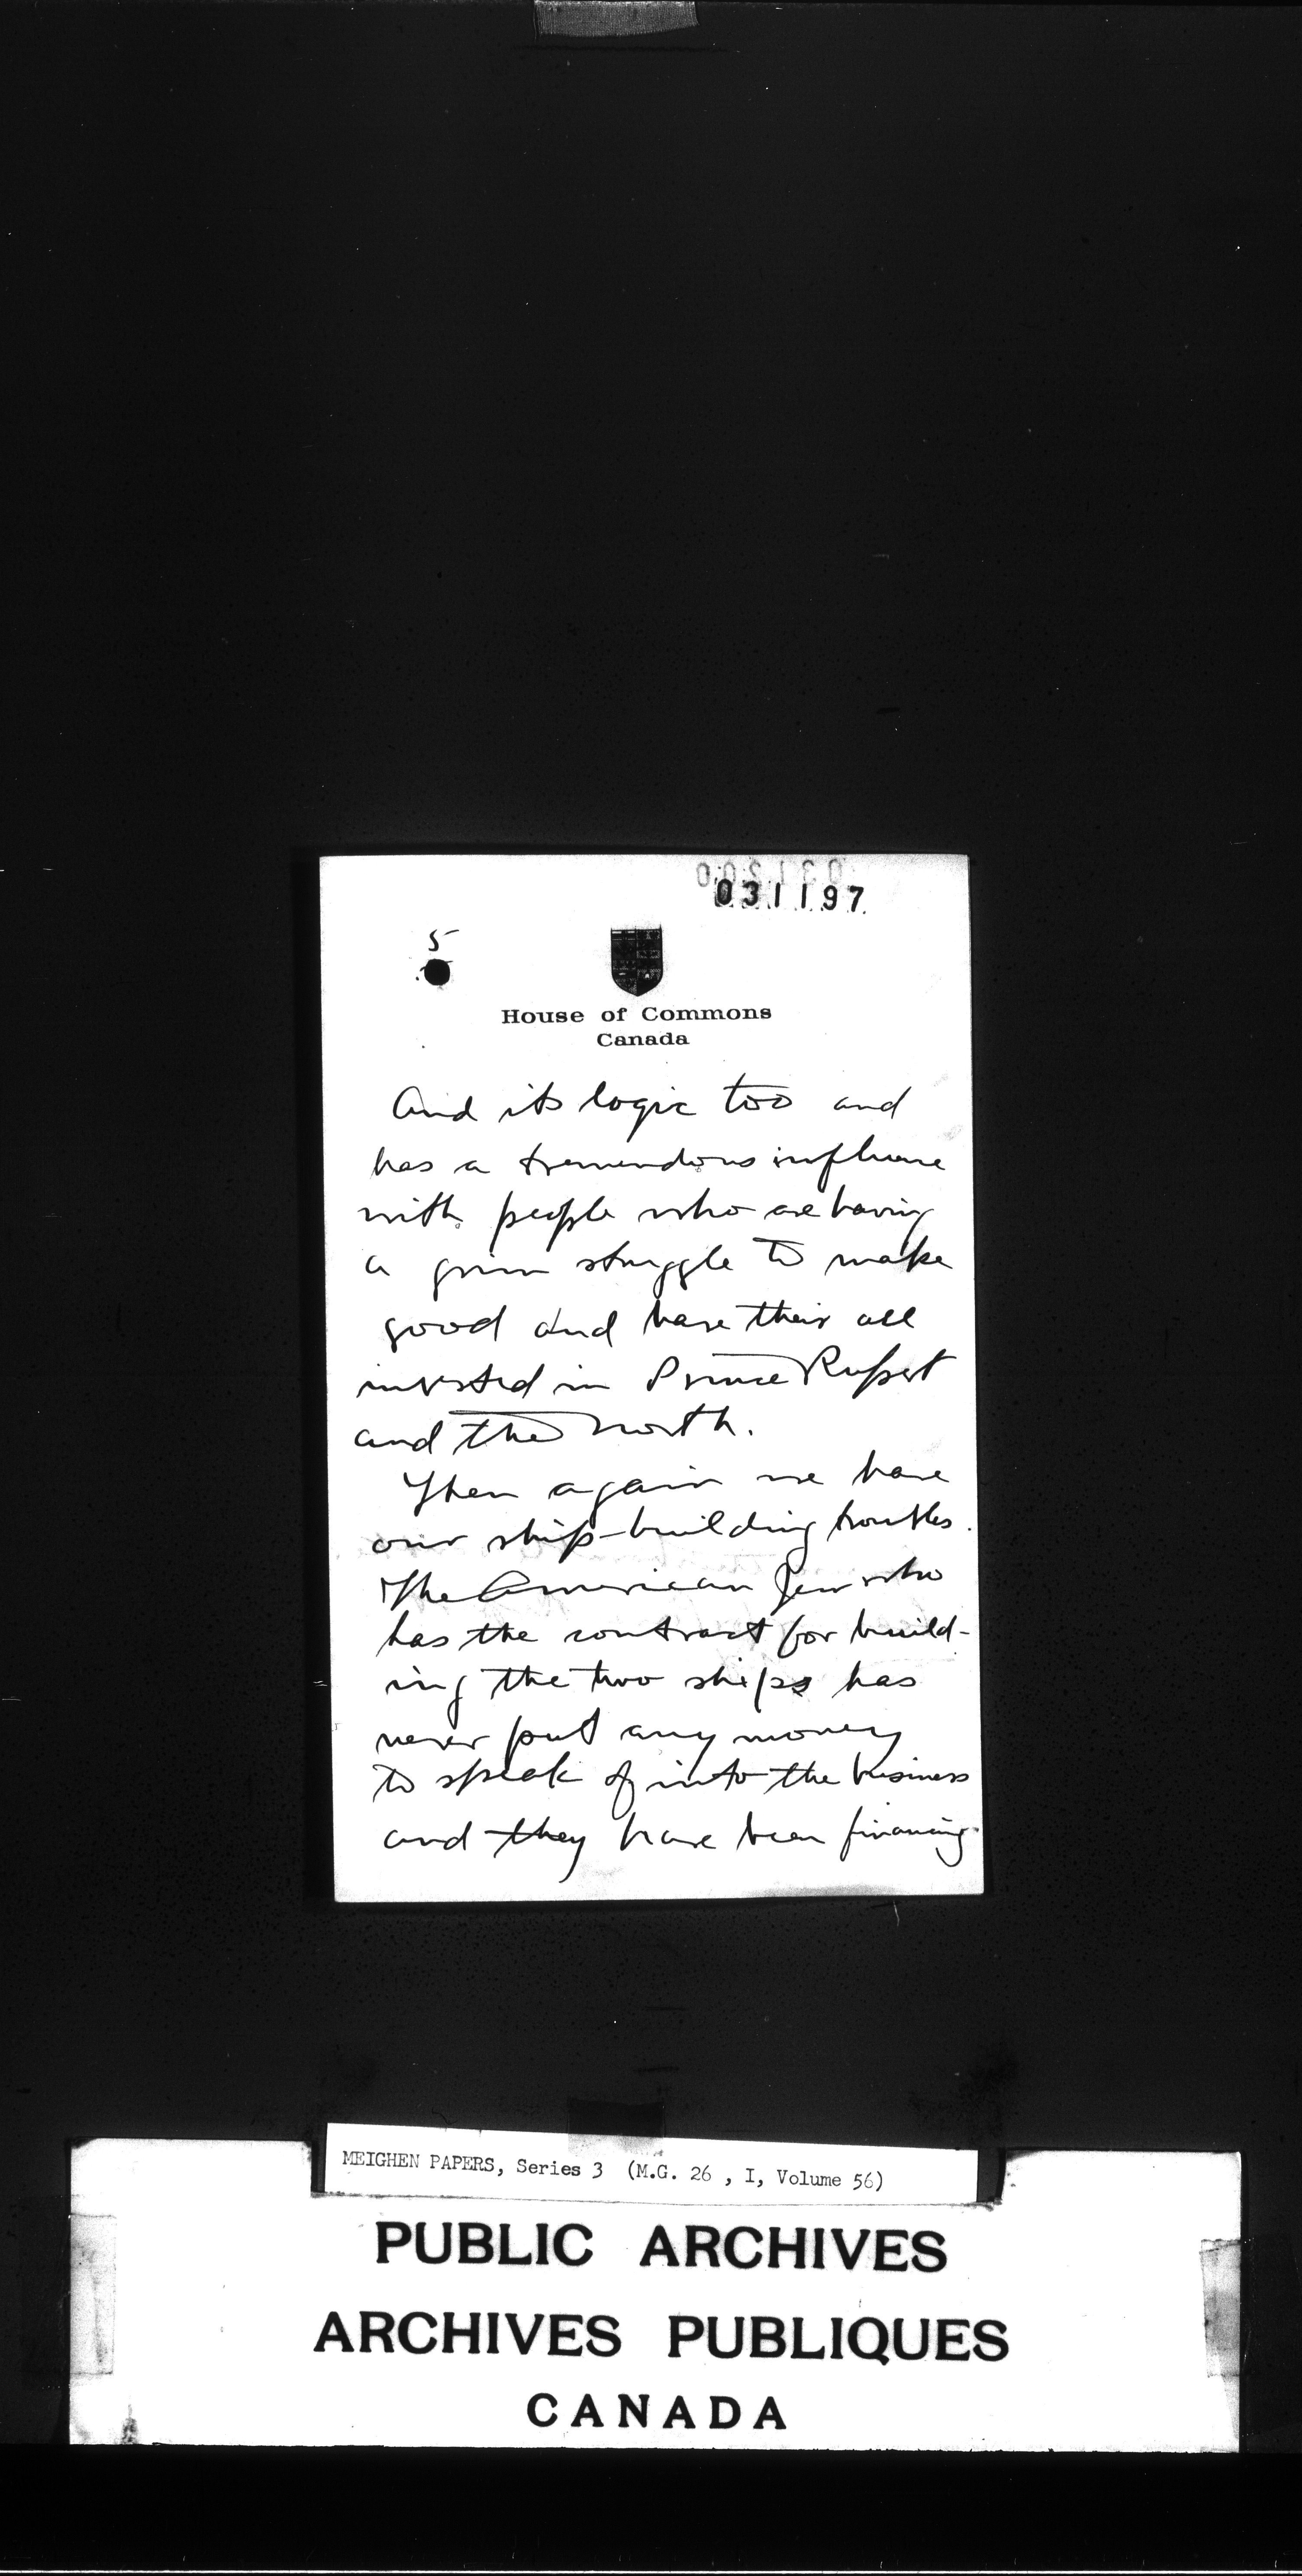 031200
031197
5
House of Commons
Canada
And its logic too and
has a tremendous influence
with people who are having
a grim struggle to make
good and have their all
invested in Prince Rupert
and the North.
Then again we have
our ship-building troubles.
The American Jew who
has the contract for build-
ing the two ships has
never put any money
to speak of into the business
and they have been financing
MEIGHEN PAPERS, Series 3 (M.G. 26 , I, Volume 56)
PUBLIC ARCHIVES
ARCHIVES PUBLIQUES
CANADA